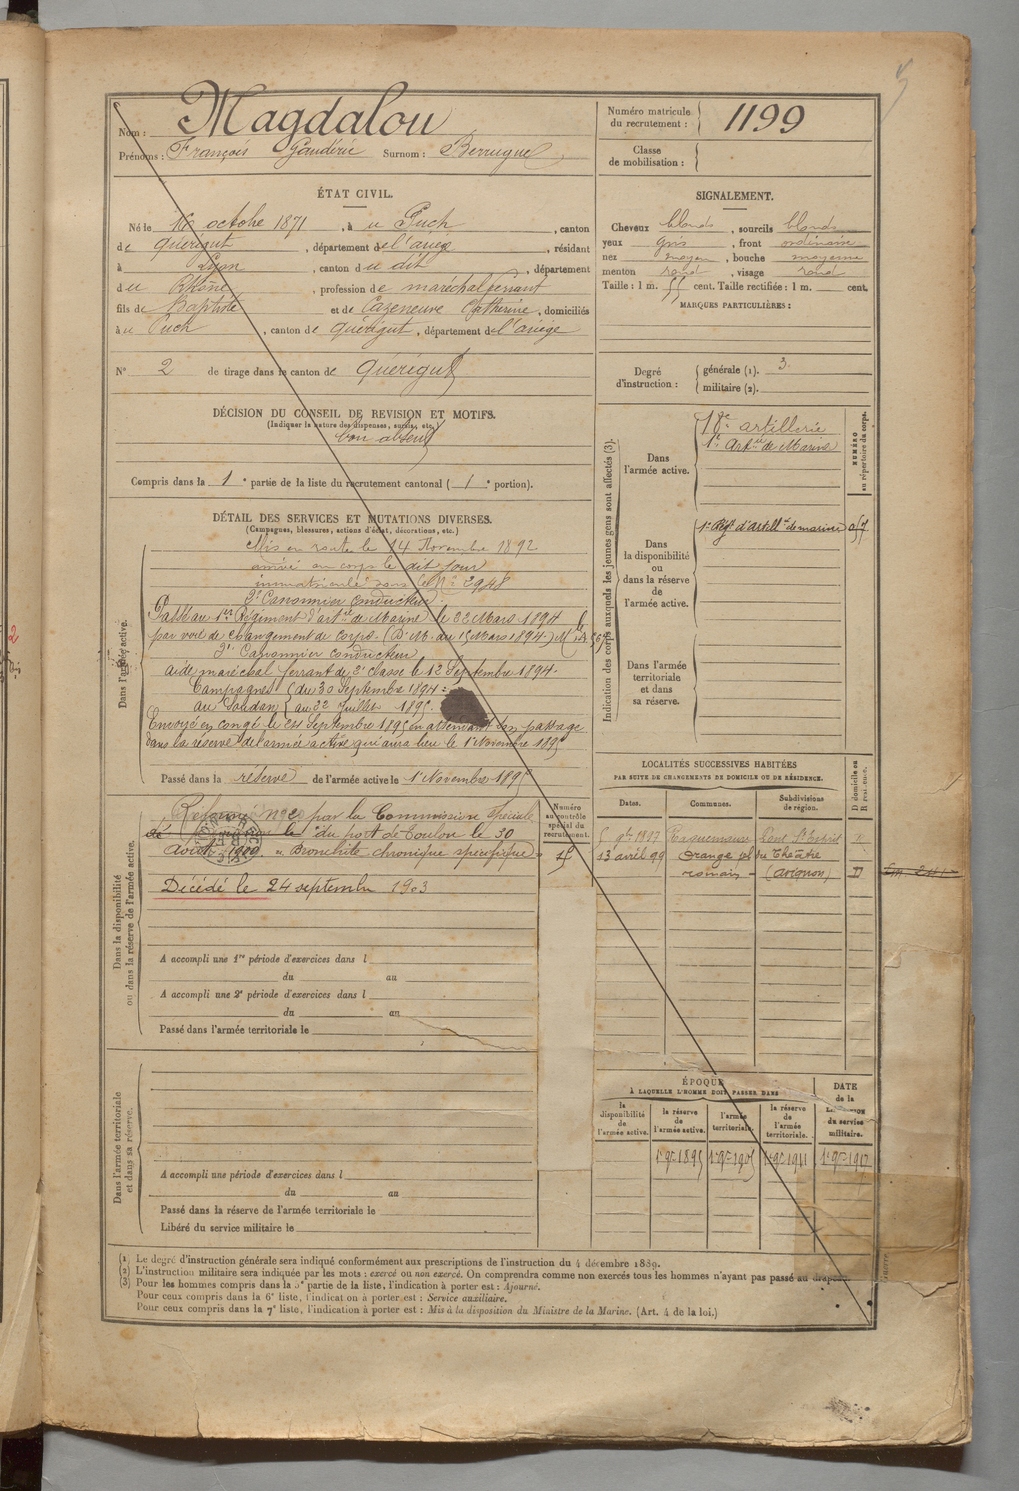 Nom : Magdalou
Prénoms : François Gaudérie Surnom : Berrugue
Numéro matricule du recrutement : 1199
Classe de mobilisation :
ÉTAT CIVIL.
Né le 16 octobre 1871, à u Puch, canton
de Quérigut, département de l'ariège, résidant
à Lyon, canton du dit, département
du Rhône, profession de maréchal ferrant
fils de Baptiste et de Cazeneuve Catherine, domiciliés
à u Puch, canton de Quérigut, département de l'ariège
N° 2 de tirage dans le canton de Quérigut
SIGNALEMENT.
Cheveux blonds, sourcils blonds
yeux gris, front ordinaire
nez moyen, bouche moyenne
menton rond, visage rond
Taille : 1 m. 55 cent. Taille rectifiée : 1 m. cent.
MARQUES PARTICULIÈRES :
Degré d'instruction : générale (1). 3.
militaire (2).
DÉCISION DU CONSEIL DE REVISION ET MOTIFS.
(Indiquer la nature des dispenses, sursis, etc.)
bon absent
Compris dans la 1e partie de la liste du recrutement cantonal (1e portion).
DÉTAIL DES SERVICES ET MUTATIONS DIVERSES.
(Campagnes, blessures, actions d'éclat, décorations, etc.)
Dans l'armée active.
Mis en route le 14 Novembre 1892
arrivé au corps le dit jour
immatriculé sous le N° 2948
2e Canonnier conducteur
Passé au 1er Régiment d'artie de Marine le 22 Mars 1894
par voie de changement de corps. (D. M. du 15 Mars 1894)
2e Canonnier conducteur
aide maréchal ferrant de 2e classe le 12 Septembre 1894.
Campagnes { du 30 Septembre 1894
au Soudan { au 22 Juillet 1895
Envoyé en congé le 24 Septembre 1895 en attendant son passage
dans la réserve de l'armée active qui aura lieu le 1er Novembre 1895
Passé dans la réserve de l'armée active le 1er Novembre 1895
Indication des corps auxquels les jeunes gens sont affectés (3).
NUMÉRO au répertoire du corps.
Dans l'armée active.
18e artillerie
1er Artie de Marine
Dans la disponibilité ou dans la réserve de l'armée active.
1er Régt d'artill. de marine
Dans l'armée territoriale et dans sa réserve.
Dans la disponibilité ou dans la réserve de l'armée active.
Réformé n° 2 par la Commission spéciale
du port de Toulon le 30
Août 1900 Bronchite chronique spécifique
Décédé le 24 septembre 1903
A accompli une 1re période d'exercices dans l
du au
A accompli une 2e période d'exercices dans l
du au
Passé dans l'armée territoriale le
Numéro au contrôle spécial du recrutement.
LOCALITÉS SUCCESSIVES HABITÉES
PAR SUITE DE CHANGEMENTS DE DOMICILE OU DE RÉSIDENCE.
Dates. Communes. Subdivisions de région. D domicile ou R résidence.
5 9bre 1897 Roquemaure Pont St Esprit R
13 avril 99 Orange pl. du Théâtre
romain (Avignon) D
Dans l'armée territoriale et dans sa réserve.
A accompli une période d'exercices dans l
du au
Passé dans la réserve de l'armée territoriale le
Libéré du service militaire le
ÉPOQUE
À LAQUELLE L'HOMME DOIT PASSER DANS
la disponibilité de l'armée active. la réserve de l'armée active. l'armée territoriale. la réserve de l'armée territoriale.
DATE de la du service militaire.
1er 9bre 1895 1er 9bre 1905 1er 9bre 1911 1er 9bre 1917
(1) Le degré d'instruction générale sera indiqué conformément aux prescriptions de l'instruction du 4 décembre 1889.
(2) L'instruction militaire sera indiquée par les mots : exercé ou non exercé. On comprendra comme non exercés tous les hommes n'ayant pas passé au drapeau.
(3) Pour les hommes compris dans la 5e partie de la liste, l'indication à porter est : Ajourné.
Pour ceux compris dans la 6e liste, l'indication à porter est : Service auxiliaire.
Pour ceux compris dans la 7e liste, l'indication à porter est : Mis à la disposition du Ministre de la Marine. (Art. 4 de la loi.)